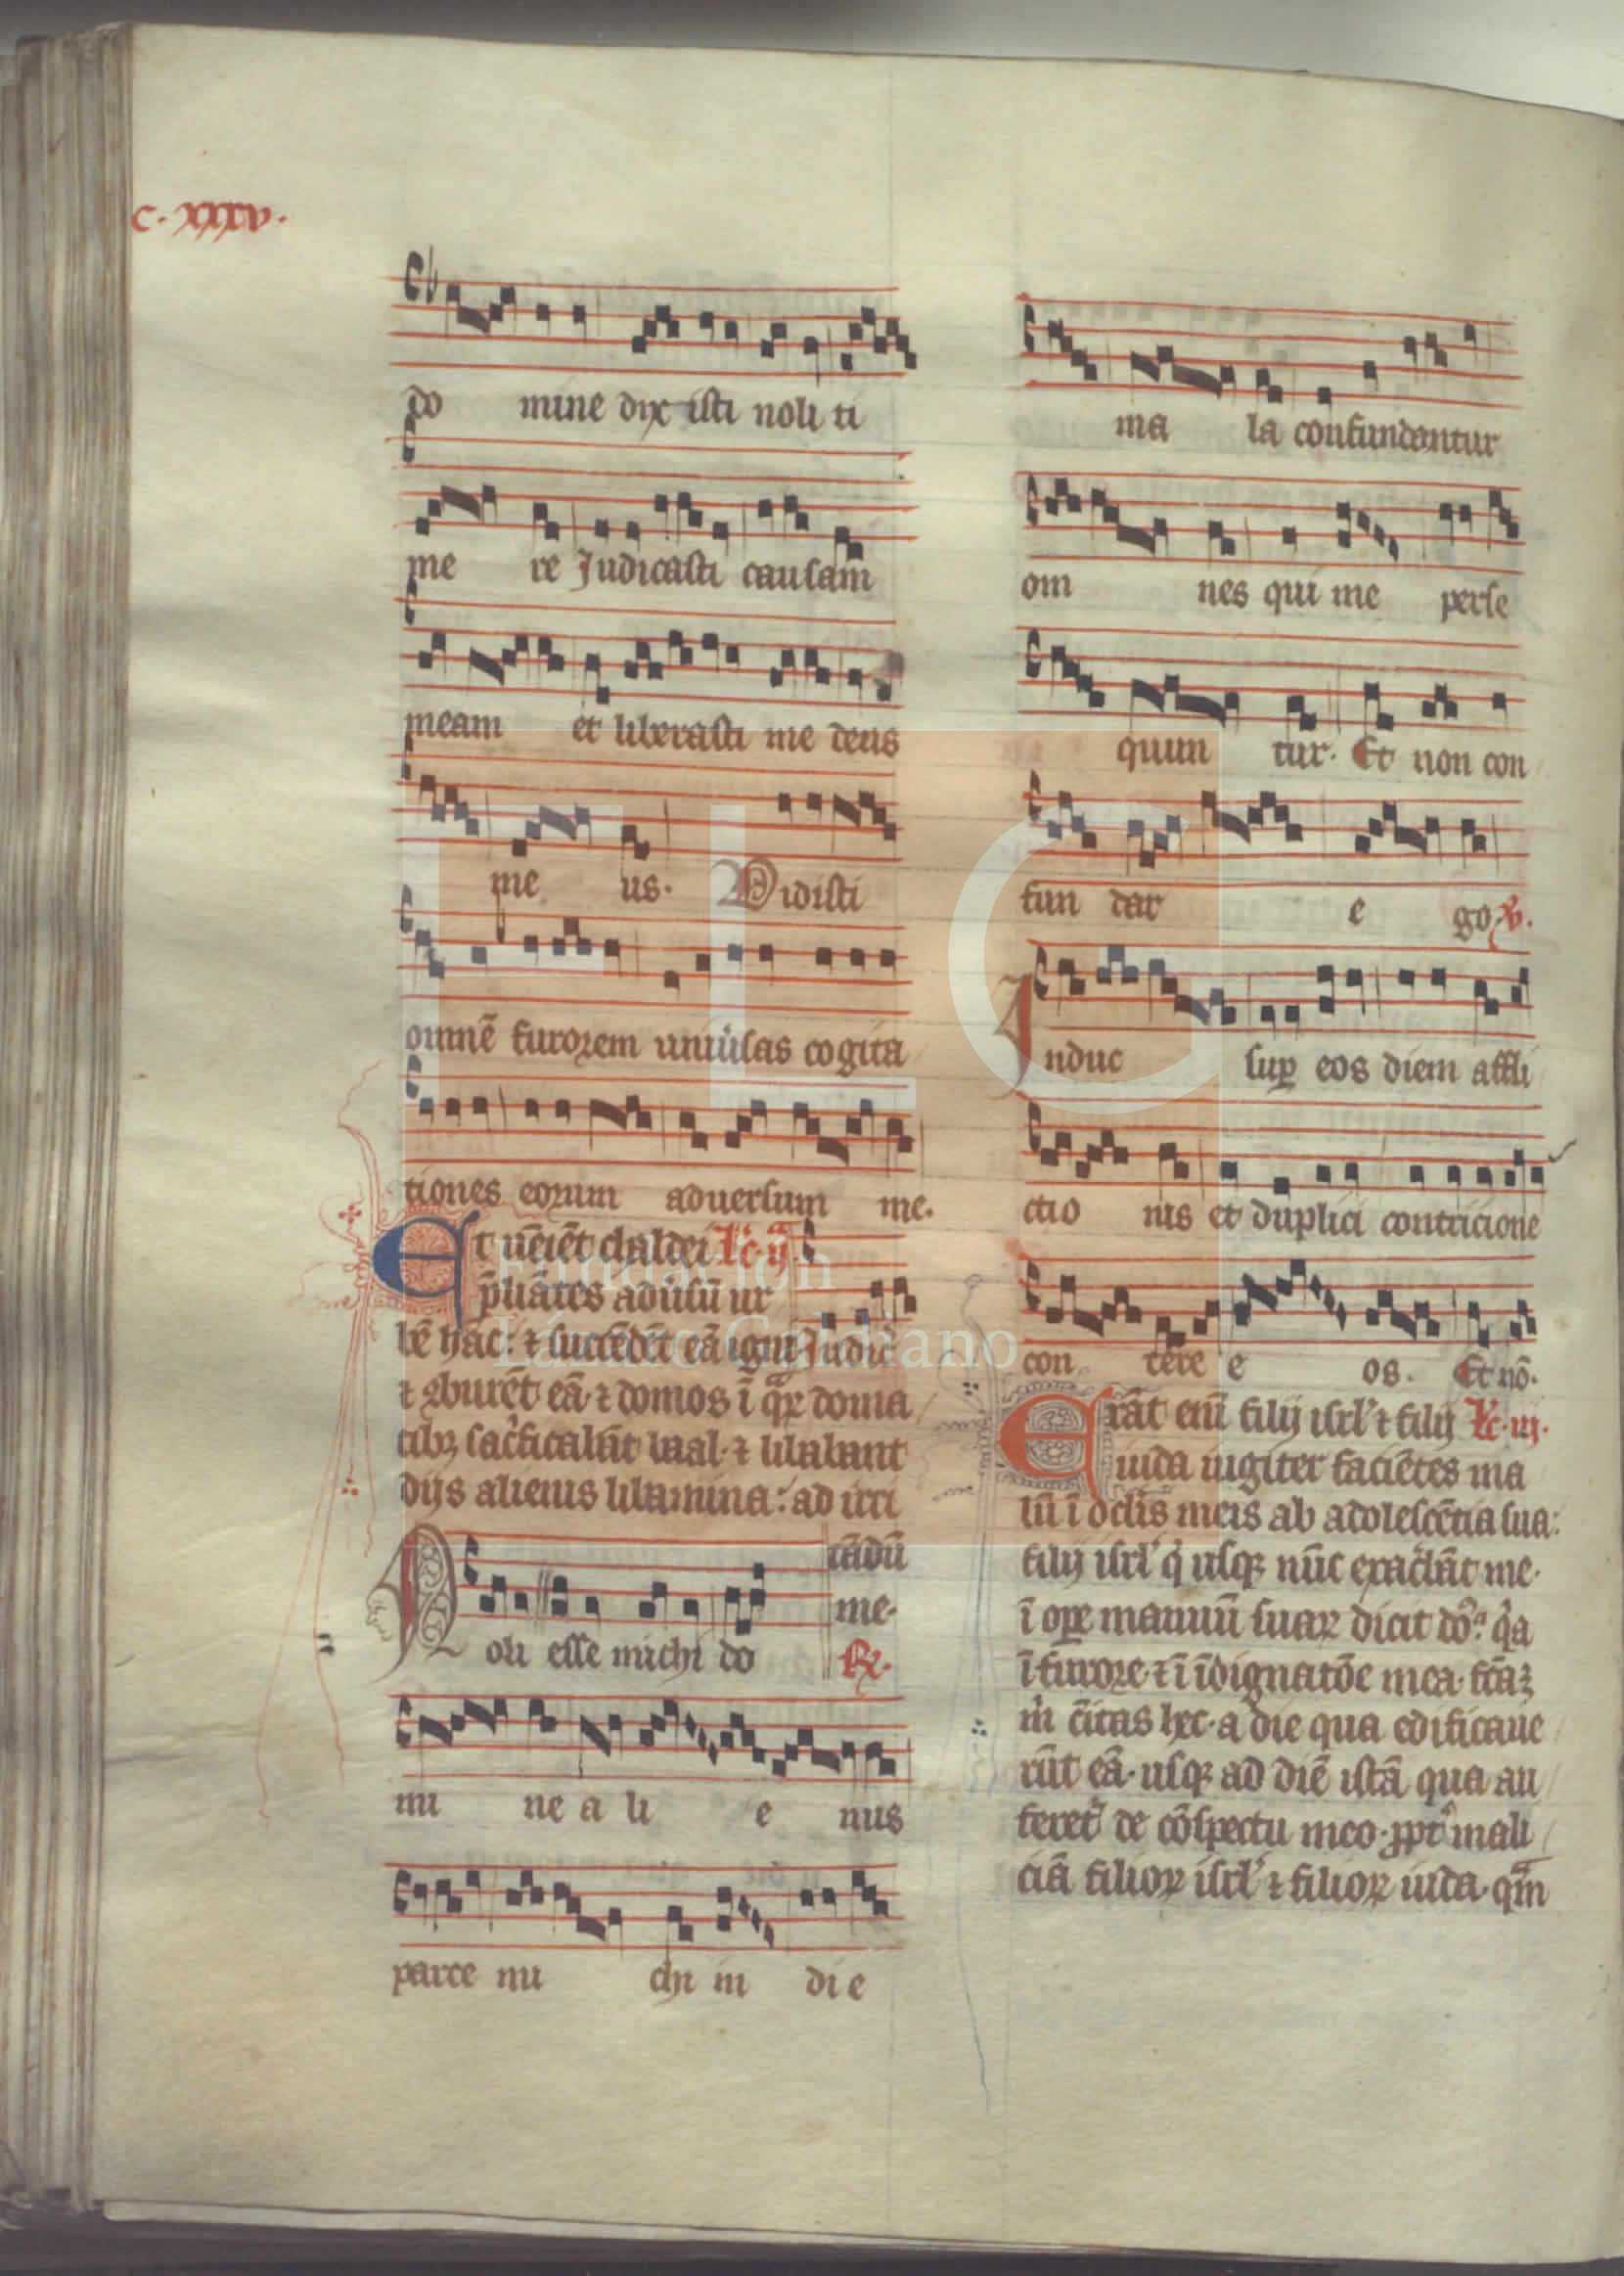 c. xxxv.
do mine dix isti noli ti
me re Judicasti causam
meam et liberasti me deus
me us. Vidisti
omnē furorem uniu̕sas cogita
tiones eorum aduersum me.
Et uēiēt chaldei Lc̄. ij.
p̄liātes adu̕sū ur
bē hāc: ⁊ succēdēt eā igni Judic̄
⁊ ꝯburēt eā ⁊ domos ī qͣꝝ doma
tibꝫ sac̕ficabāt baal ⁊ libabant
dijs alienis libamina: ad irri
tādū
me.
Noli esse michi do ℟.
mi ne a li e nus
parce mi chi in di e
ma la confundantur
om nes qui me perse
quun tur. Et non con
fun dar e go ℣.
Induc suꝑ eos diem affli
ctio nis et duplici contricione
con tere e os. Et nō.
Erāt enī filij isrl̕ ⁊ filij Lc̄. iij.
iuda iugiter faciētes ma
lū ī oclis meis ab adolescētia sua:
filij isrl̕ qͥ usqꝫ nūc exac̕bāt me
ī oꝑe manuū suaꝝ dicit dō̄s. qͥa
ī furore ⁊ ī īdignatōe mea fc̄aꝫ
m̕ cīitas hec. a die qua edificaue
rūt eā. usqꝫ ad diē istā qua au
feret̕ de cōspectu meo. ꝓpt̕ mali
ciā filioꝝ isrl̕ ⁊ filioꝝ iuda. qm̄
FLG
Fundación
Lázaro Galdiano